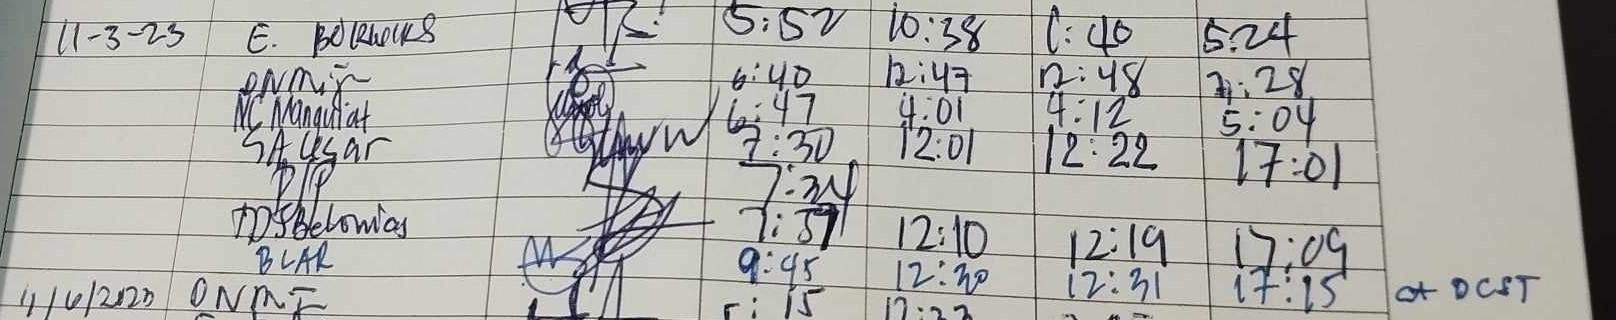 11-3-23 E. 5:52 10:38 1:40 5:24
ONMI 6:40 12:47 12:48 4:28
NC Manguiat 6:47 4:01 4:12 5:04
SA Cesar 7:30 12:01 12:22 17:01
7:34
7:57 12:10 12:19 17:09
BLAR 9:45 12:30 12:31 17:15 at DCST
11/6/2023 ONMI 5:15